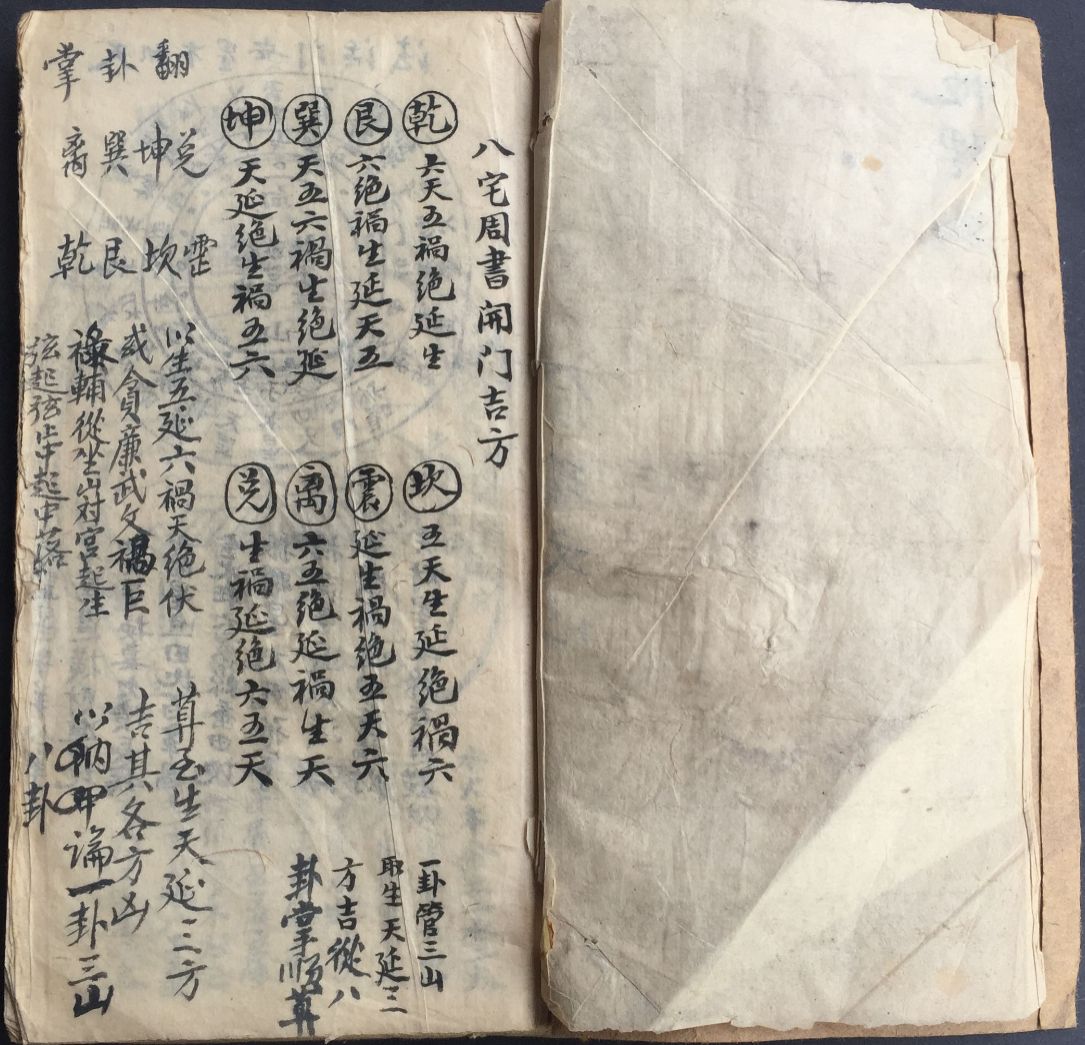 八宅周書開门吉方
乾 六天五禍绝延生
艮 六绝禍生延天五
巽 天五六禍生绝延
坤 天延绝生禍五六
坎 五天生延绝禍六
震 延生禍绝五天六
离 六五绝延禍生天
兑 生禍延绝六五天
一卦管三山
取生天延三
方吉從八
卦掌順算
翻卦掌
兑坤巽离
坎艮乾
以生五延六禍天绝伏
貪廉武文禍巨
祿輔從坐山对宫起生
弦起弦止中起中落
算至生天延三方
吉其各方凶
以納甲論一卦三山
八卦